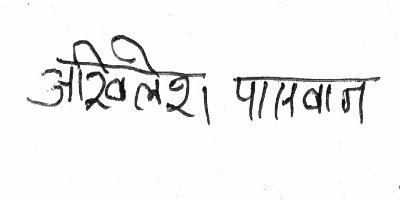 अखिलेश पासवान